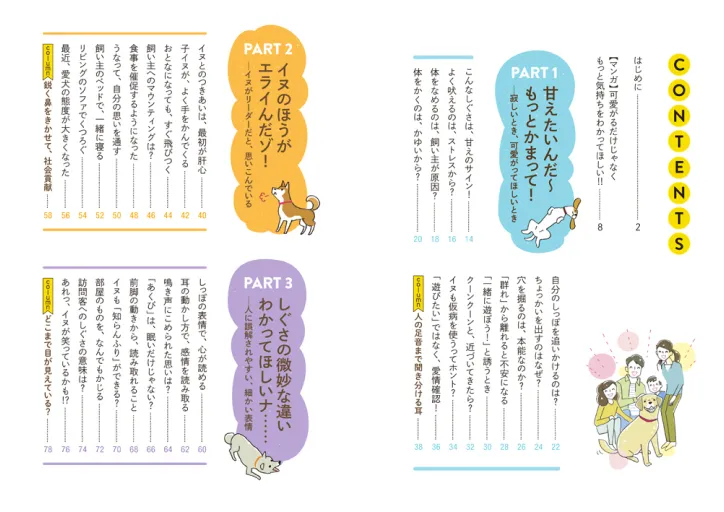 CONTENTS
はじめに 2
【マンガ】可愛がるだけじゃなく
もっと気持ちをわかってほしい!! 8
PART 1
甘えたいんだ〜
もっとかまって!
—寂しいとき、可愛がってほしいとき
こんなしぐさは、甘えのサイン! 14
よく吠えるのは、ストレスから? 16
体をなめるのは、飼い主が原因? 18
体をかくのは、かゆいから? 20
自分のしっぽを追いかけるのは? 22
ちょっかいを出すのはなぜ? 24
穴を掘るのは、本能なのか? 26
「群れ」から離れると不安になる 28
「一緒に遊ぼう!」と誘うとき 30
クーンクーンと、近づいてきたら? 32
イヌも仮病を使うってホント? 34
「遊びたい」ではなく、愛情確認! 36
column 人の足音まで聞き分ける耳 38
PART 2
イヌのほうが
エライんだゾ!
—イヌがリーダーだと、思いこんでいる
イヌとのつきあいは、最初が肝心 40
子イヌが、よく手をかんでくる 42
おとなになっても、すぐ飛びつく 44
飼い主へのマウンティングは? 46
食事を催促するようになった 48
うなって、自分の思いを通す 50
飼い主のベッドで、一緒に寝る 52
リビングのソファでくつろぐ 54
最近、愛犬の態度が大きくなった 56
column 鋭く鼻をきかせて、社会貢献 58
PART 3
しぐさの微妙な違い
わかってほしいナ……
—人に誤解されやすい、細かい表情
しっぽの表情で、心が読める 60
耳の動かし方で、感情を読み取る 62
鳴き声にこめられた思いは? 64
「あくび」は、眠いだけじゃない? 66
前脚の動きから、読み取れること 68
イヌも「知らんふり」ができる? 70
部屋のものを、なんでもかじる 72
訪問客へのしぐさの意味は? 74
あれっ、イヌが笑っているかも!? 76
column どこまで目が見えている? 78